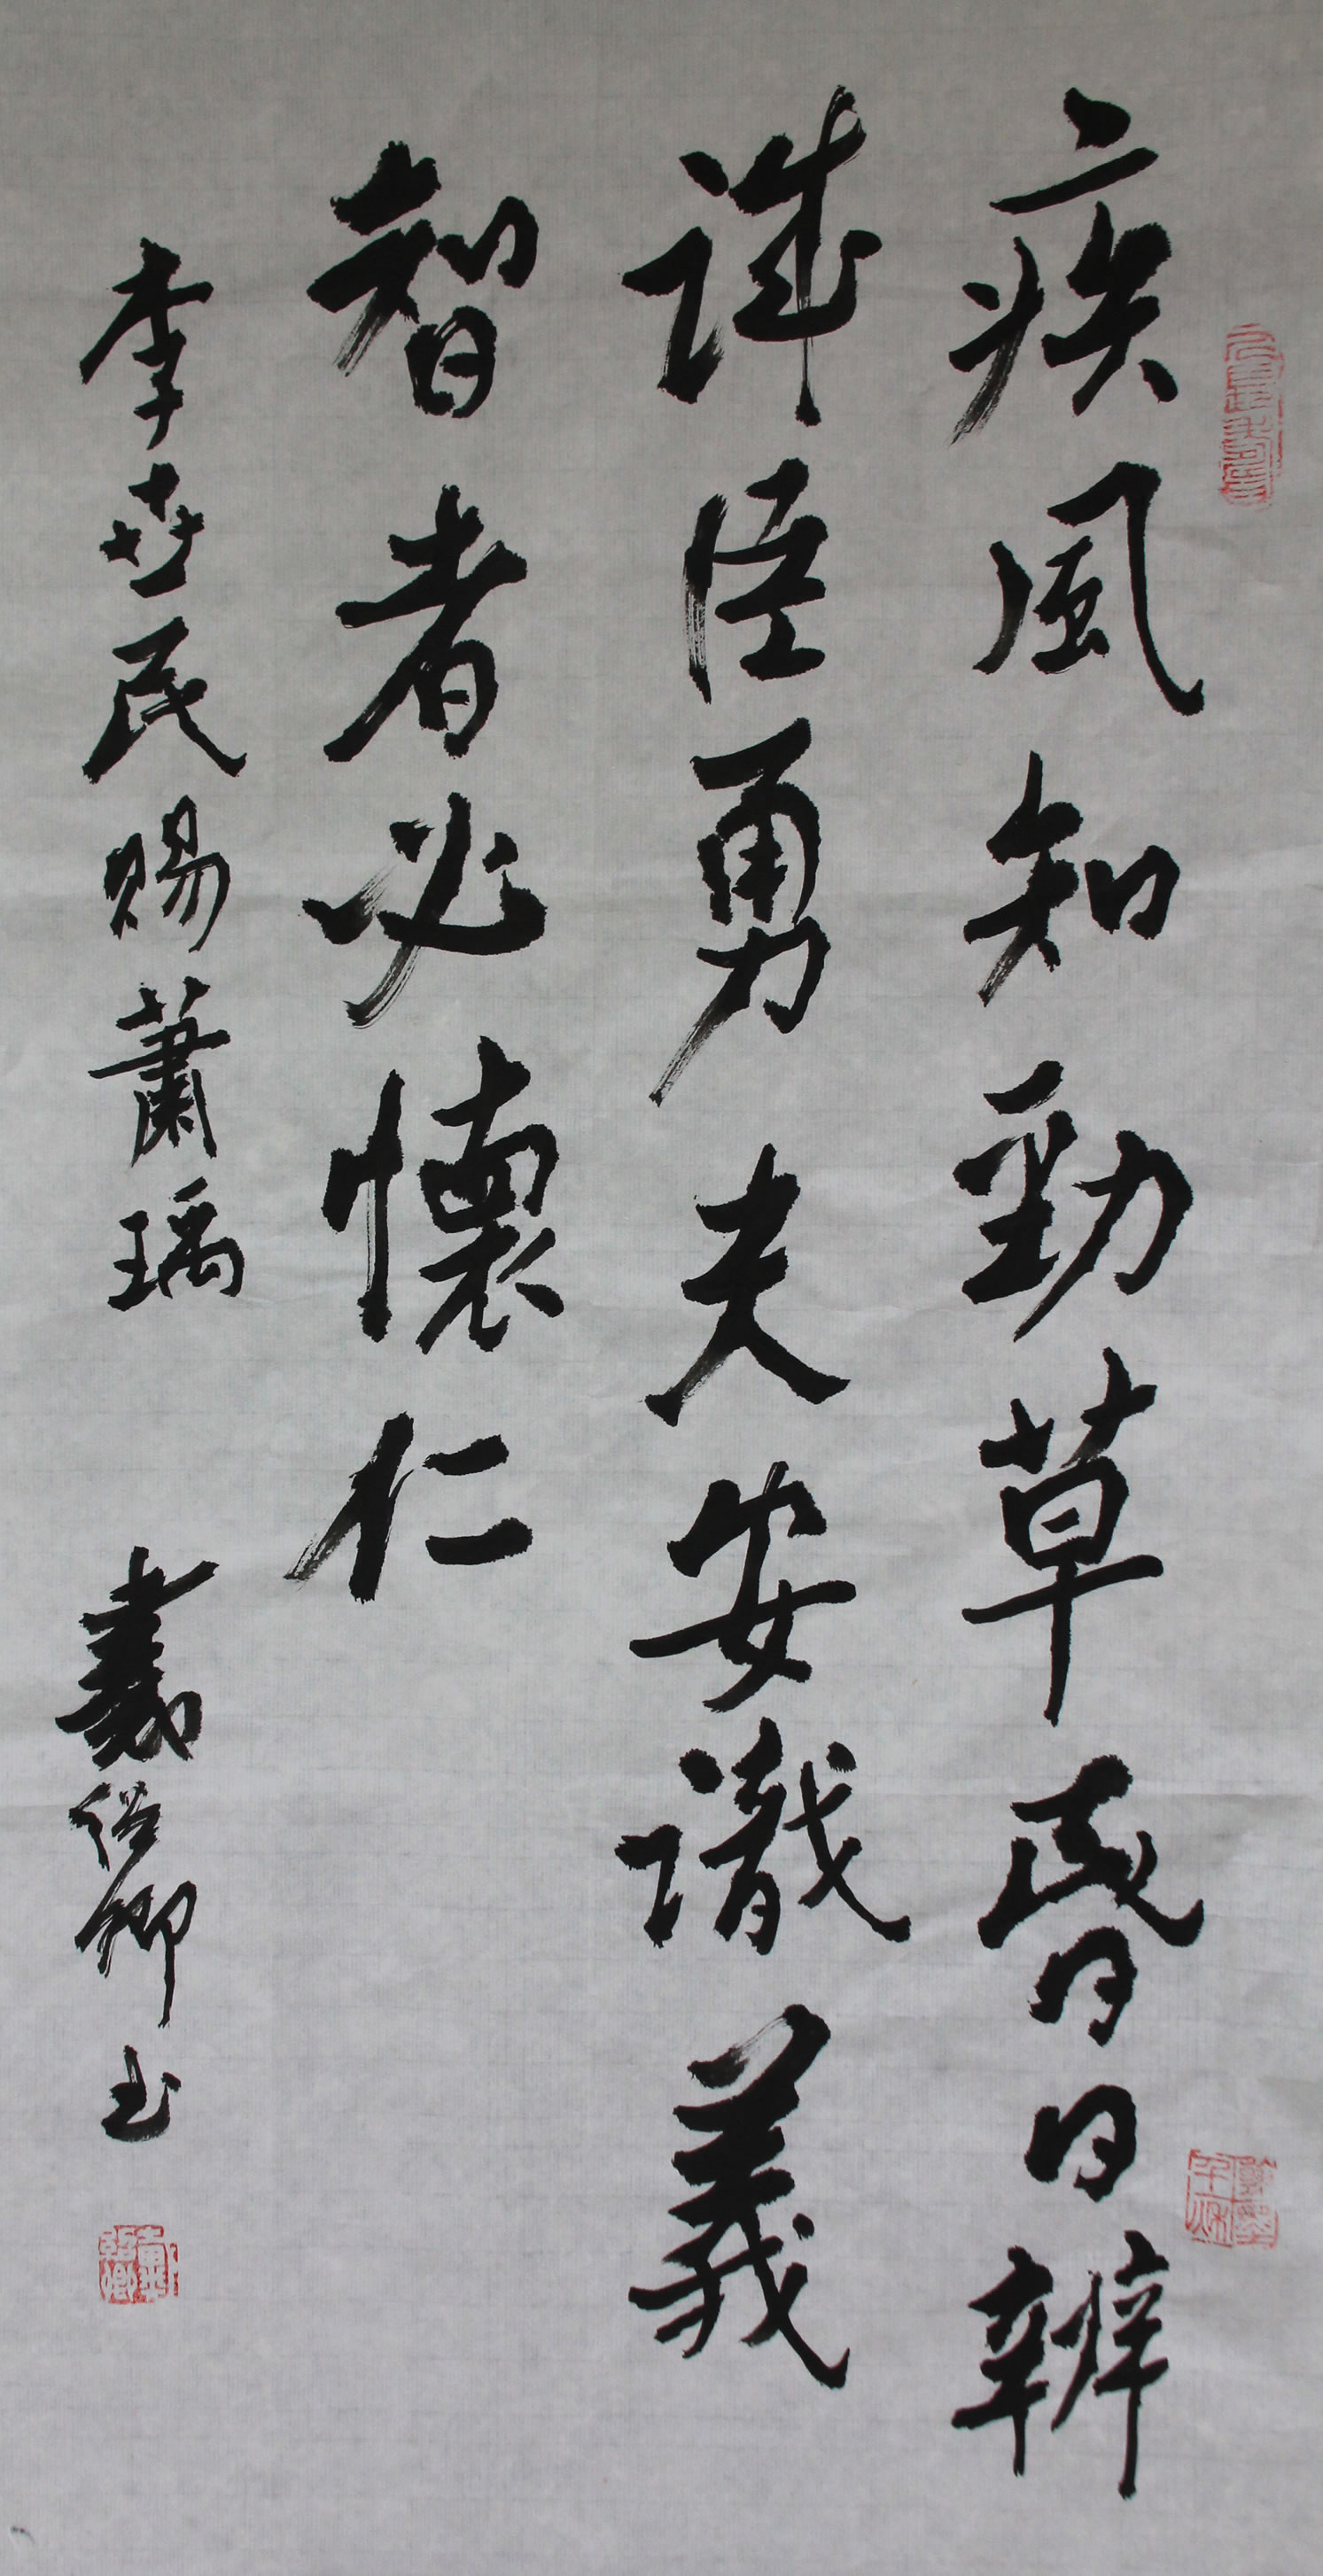 疾風知勁草昏日辨
誠臣勇夫安識義
智者必懷仁
李世民賜蕭瑀 戴卿书